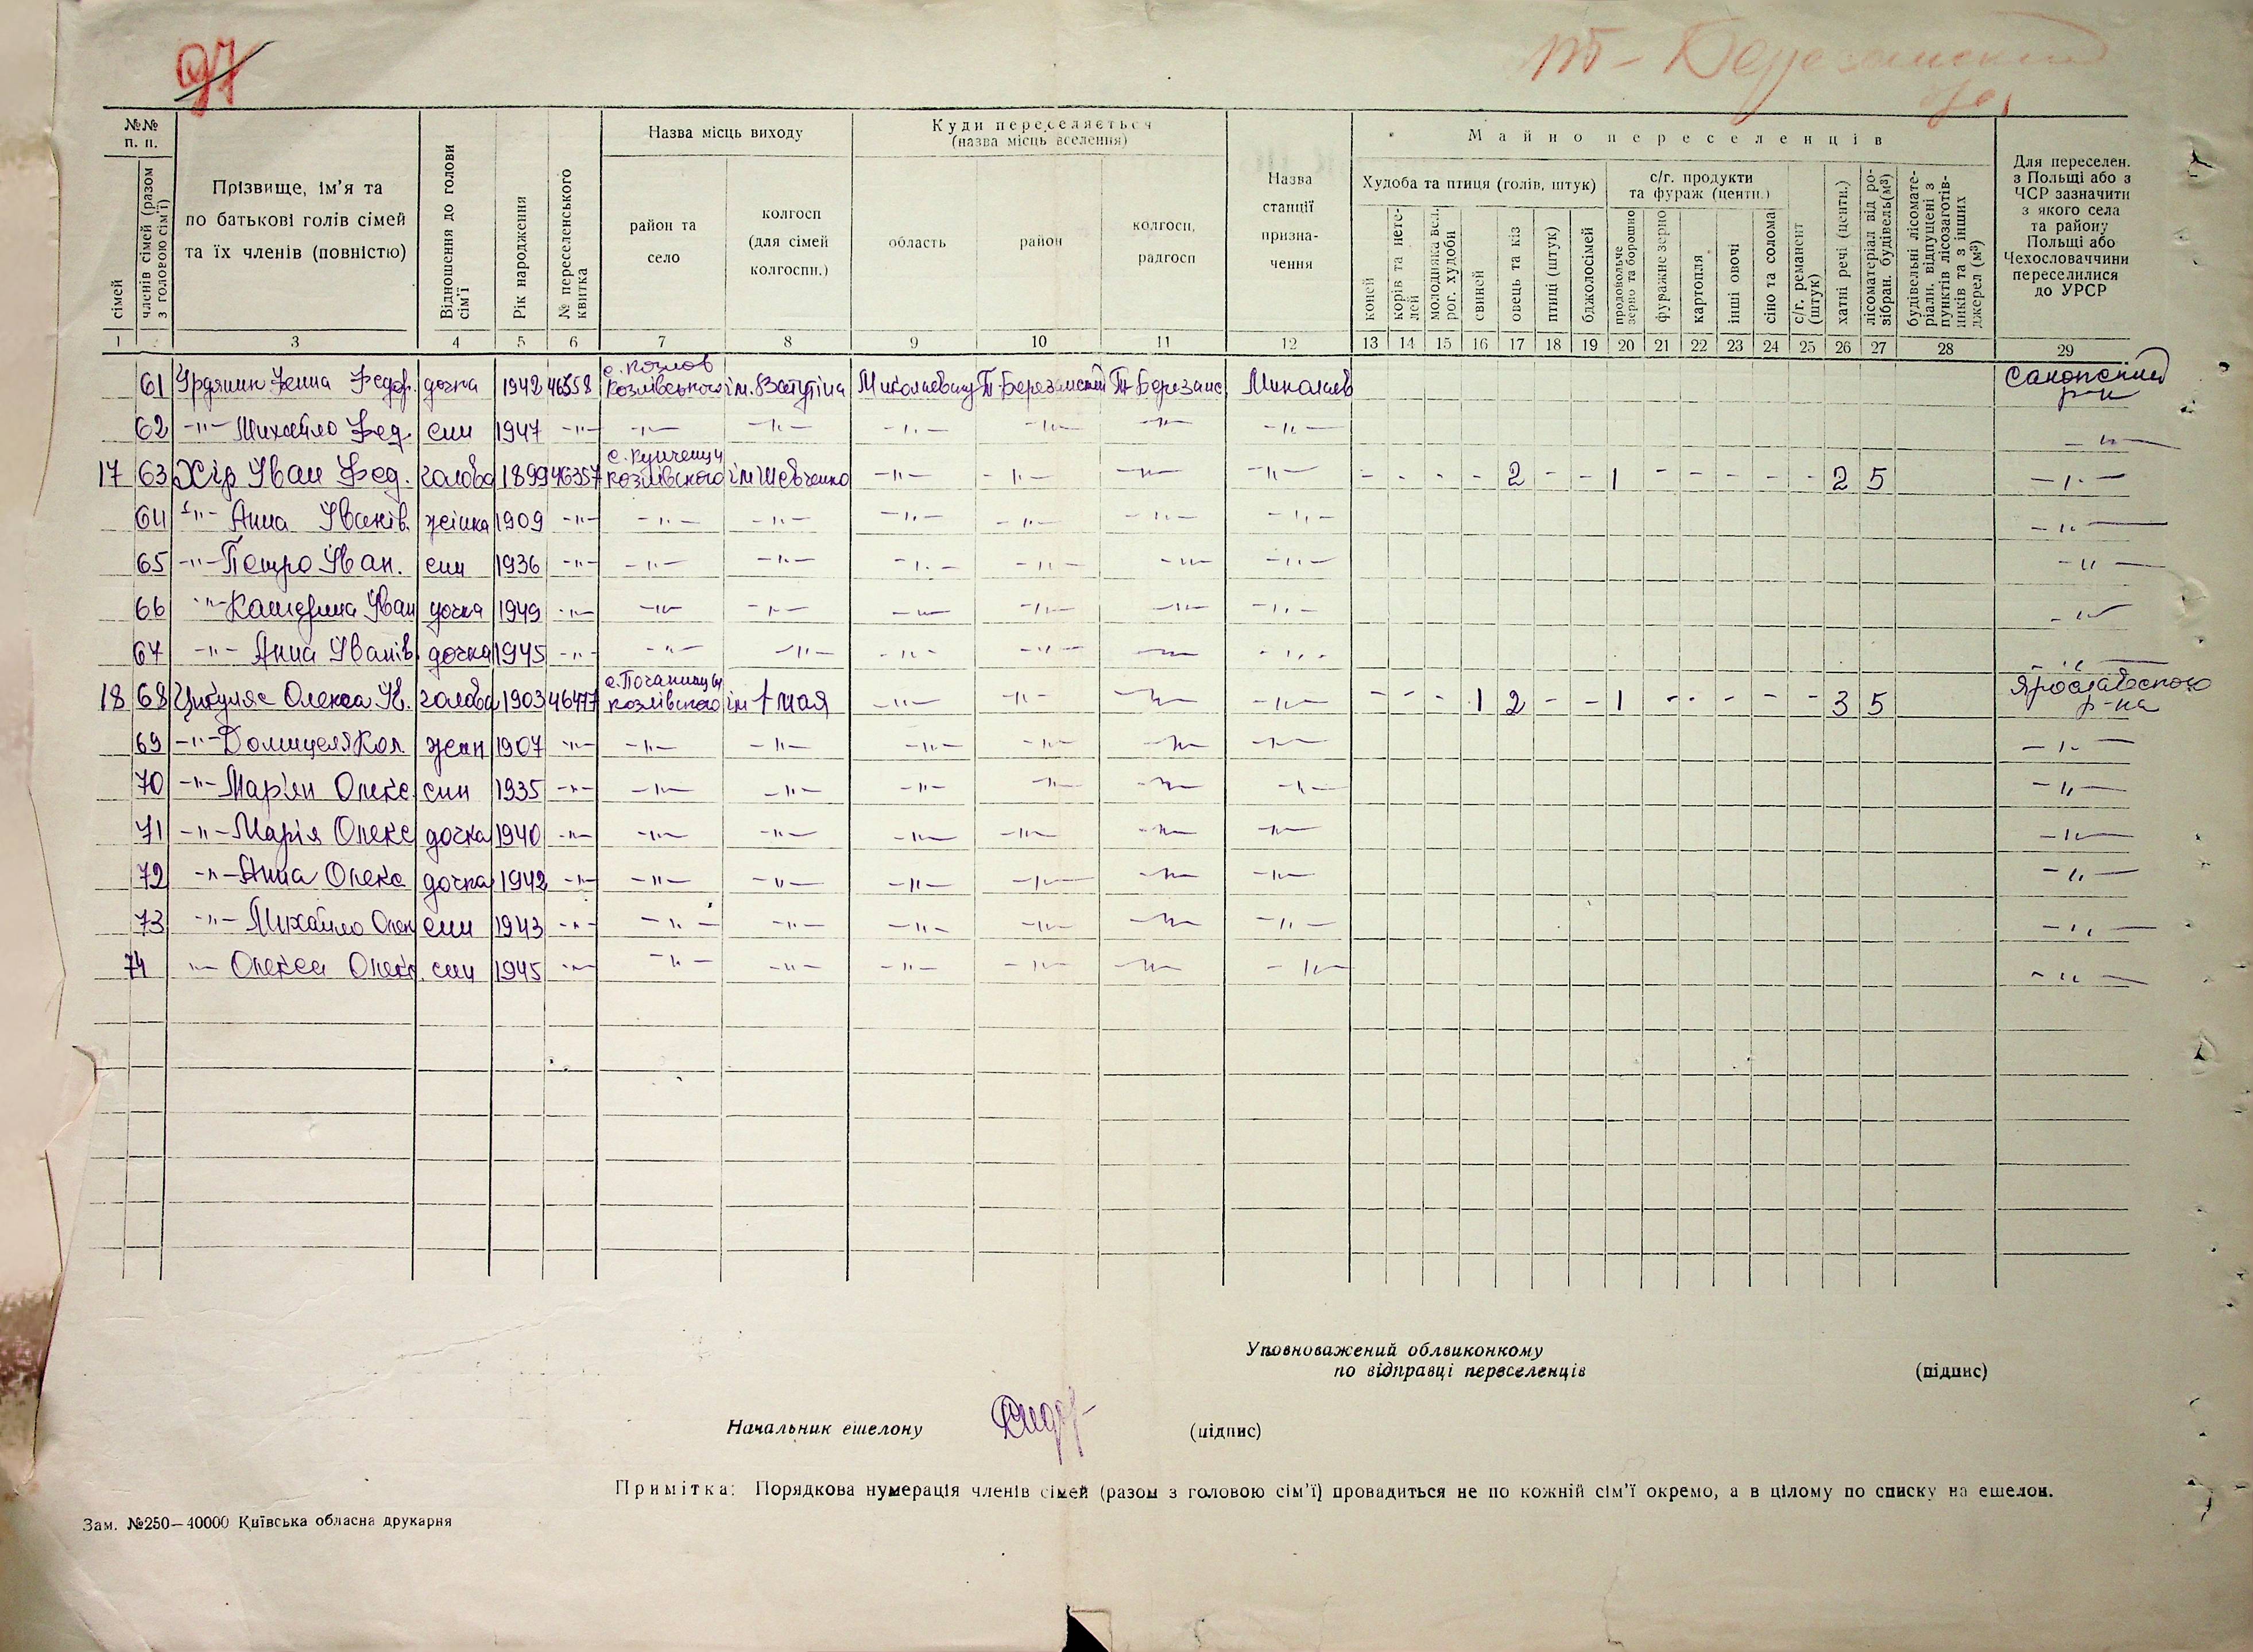 97
Т-Березанський
№№ п. п.
сімей
членів сімей (разом з головою сім'ї)
Прізвище, ім'я та по батькові голів сімей та їх членів (повністю)
Відношення до голови сім'ї
Рік народження
№ переселенського квитка
Назва місць виходу
район та село
колгосп (для сімей колгоспн.)
Куди переселяється (назва місць вселення)
область
район
колгосп, радгосп
Назва станції призна-чення
Майно переселенців
Худоба та птиця (голів, штук)
коней
корів та нете-лей
молодняка вел. рог. худоби
свиней
овець та кіз
птиці (штук)
бджолосімей
с/г. продукти та фураж (центн.)
продовольче зерно та борошно
фуражне зерно
картопля
інші овочі
сіно та солома
с/г. реманент (штук)
хатні речі (центн.)
лісоматеріал від ро-зібран. будівель(м³)
будівельні лісомате-ріали, відпущені з пунктів лісозаготів-ників та з інших джерел (м³)
Для переселен. з Польщі або з ЧСР зазначити з якого села та району Польщі або Чехословаччини переселилися до УРСР
1 2 3 4 5 6 7 8 9 10 11 12 13 14 15 16 17 18 19 20 21 22 23 24 25 26 27 28 29
61 Федор. дочка 1942 46358 с. Козлов Козлівського ім. Ватутіна Т-Березанський Т-Березанс. Миколаїв р-н
62 -"- Михайло Фед. син 1947 -"- -"- -"- -"- -"- -"- -"- -"-
17 63 Хір Іван Фед. голова 1899 46357 с. Купчинці Козлівського ім Шевченко -"- -"- -"- -"- - - - - 2 - - 1 - - - - - 2 5 -"-
64 -"- Анна Іванів. жінка 1909 -"- -"- -"- -"- -"- -"- -"- -"-
65 -"- Петро Іван. син 1936 -"- -"- -"- -"- -"- -"- -"- -"-
66 -"- Катерина Іван дочка 1949 -"- -"- -"- -"- -"- -"- -"- -"-
67 -"- Анна Іванів. дочка 1945 -"- -"- -"- -"- -"- -"- -"- -"-
18 68 Олекса Ів. голова 1903 46477 Козлівського ім 1 мая -"- -"- -"- -"- - - - 1 2 - - 1 - - - - - 3 5 р-на
69 -"- жін 1907 -"- -"- -"- -"- -"- -"- -"- -"-
70 -"- Мар'ян Олекс син 1935 -"- -"- -"- -"- -"- -"- -"- -"-
71 -"- Марія Олекс дочка 1940 -"- -"- -"- -"- -"- -"- -"- -"-
72 -"- Анна Олекс дочка 1942 -"- -"- -"- -"- -"- -"- -"- -"-
73 -"- Михайло Олек син 1943 -"- -"- -"- -"- -"- -"- -"- -"-
74 -"- Олекса Олекс. син 1945 -"- -"- -"- -"- -"- -"- -"- -"-
Уповноважений облвиконкому
по відправці переселенців (підпис)
Начальник ешелону (підпис)
Примітка: Порядкова нумерація членів сімей (разом з головою сім'ї) провадиться не по кожній сім'ї окремо, а в цілому по списку на ешелон.
Зам. №250—40000 Київська обласна друкарня